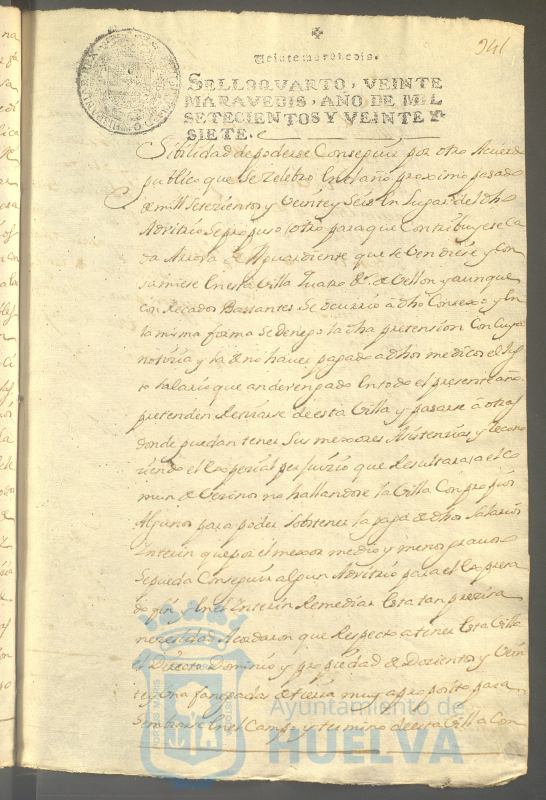 941
Veinte maravedis.
SELLO QVARTO, VEINTE
MARAVEDIS, AÑO DE MIL
SETECIENTOS Y VEINTE Y
SIETE.
sibilidad de poderse Conseguir por otro Acuerdo
publico que se zelebro en el año proximo pasado
de mill Setezientos y Veinte y Seis En Lugar de dho
Advitrio se propuso otro para que Contribuyese ca
da Arroba de Aguardiente que se Vendiese y con
sumiese en esta Villa quatro Rs. de Vellon y aunque
con Recados Bastantes Se ocurrio a dho Consexo y En
la misma forma se denego la dha pretension Con cuya
notizia y la de no haver pagado a dhos medicos el
salario que an devengado En todo el presente año
pretenden Retirarse de esta Villa y pasarse a otras
donde puedan tener Sus mexores Asistenzias y recono
ziendo el perjuizio que Resultara a el Co
mun de Vezinos no hallandose la Villa Con propios
Algunos para poder sobstener la paga de dhos Salarios
Interin que por el mexor medio y menos
Se pueda Conseguir algun Advitrio para el expresa
do fin y En el Interin Remediar Esta tan preziza
nezesidad Acordaron que Respecto a tener Esta Villa
el Directo Dominio y propiedad de Dozientos y Vein
te y Una fanegadas de tierra muy a proposito para
Sembrar en el Campo y termino de esta Villa Con
Ayuntamiento de
HUELVA